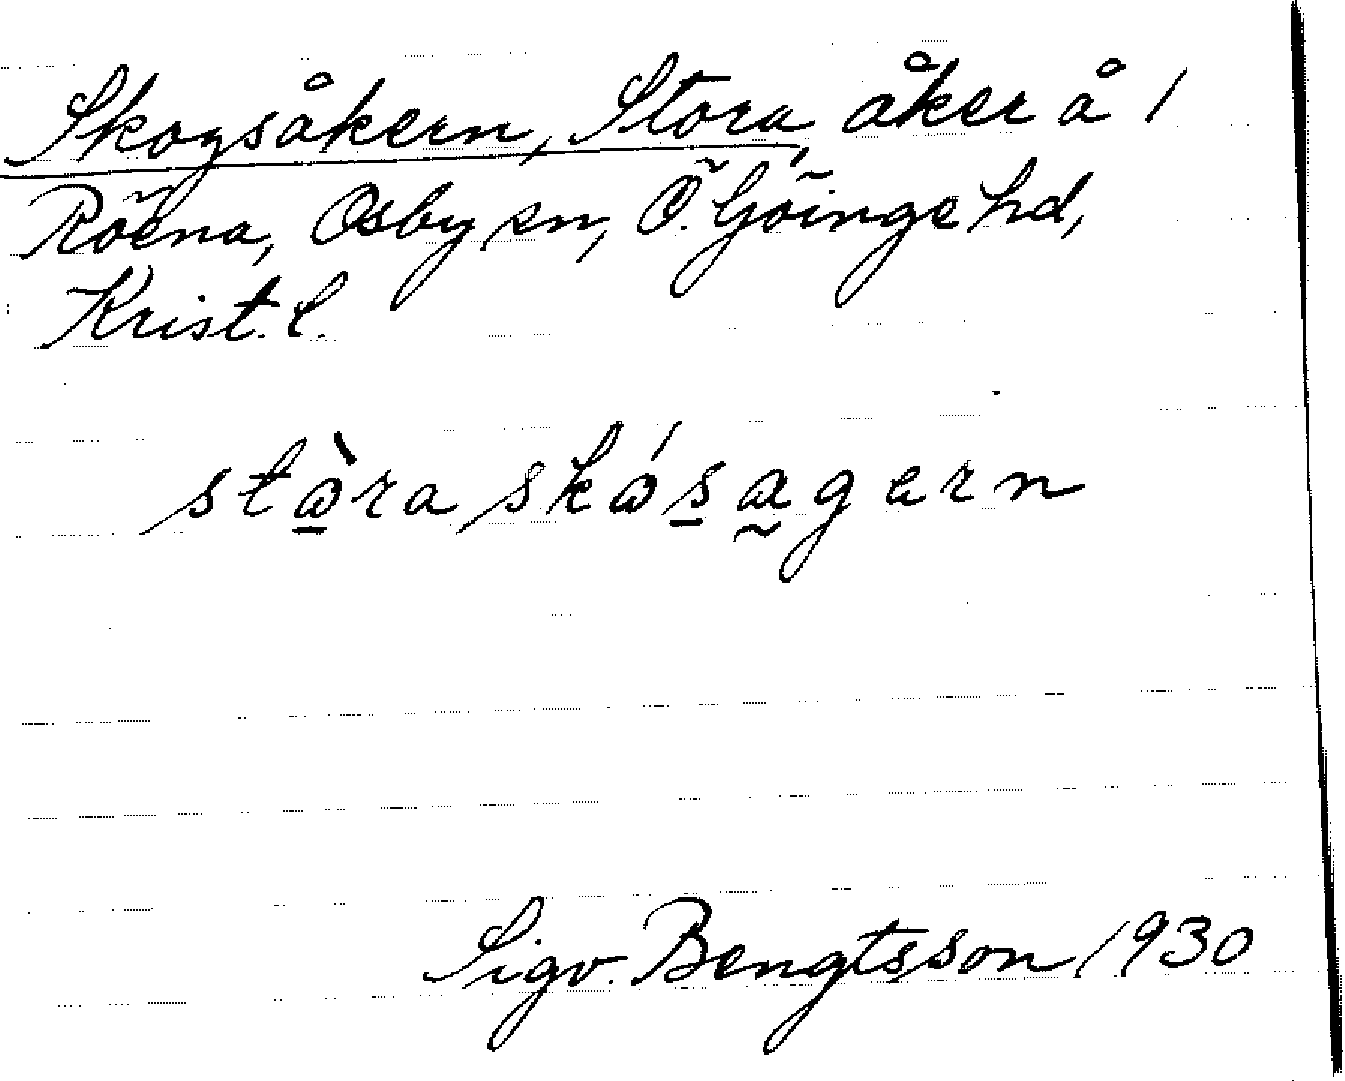 Skogsåkern, Stora, åker å 1
Röena, Osby sn, Ö. Göinge hd,
Krist. l.
stɷ̠̀ra skɷ́s̠a̰gern
Sigv. Bengtsson 1930